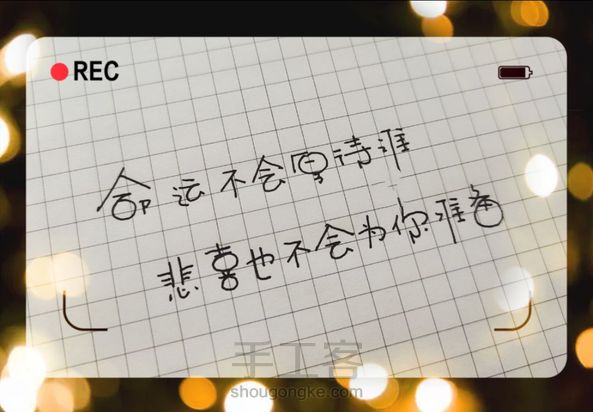 REC
命运不会厚待谁
悲喜也不会为你准备
手工客
shougongke.com